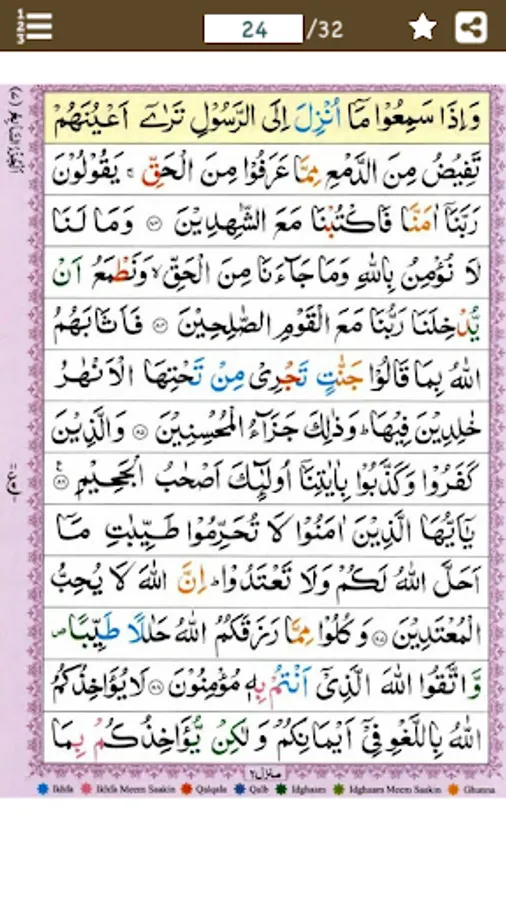 24 /32
الجزء السابع (٧)
وَاِذَا سَمِعُوْا مَاۤ اُنْزِلَ اِلَى الرَّسُوْلِ تَرٰۤى اَعْيُنَهُمْ
تَفِيْضُ مِنَ الدَّمْعِ مِمَّا عَرَفُوْا مِنَ الْحَقِّ ۚ يَقُوْلُوْنَ
رَبَّنَاۤ اٰمَنَّا فَاكْتُبْنَا مَعَ الشّٰهِدِيْنَ ﴿۸۳﴾ وَمَا لَنَا
لَا نُؤْمِنُ بِاللّٰهِ وَمَا جَآءَنَا مِنَ الْحَقِّ ۙ وَنَطْمَعُ اَنْ
يُّدْخِلَنَا رَبُّنَا مَعَ الْقَوْمِ الصّٰلِحِيْنَ ﴿۸۴﴾ فَاَثَابَهُمُ
اللّٰهُ بِمَا قَالُوْا جَنّٰتٍ تَجْرِيْ مِنْ تَحْتِهَا الْاَنْهٰرُ
خٰلِدِيْنَ فِيْهَا ؕ وَذٰلِكَ جَزَآءُ الْمُحْسِنِيْنَ ﴿۸۵﴾ وَالَّذِيْنَ
كَفَرُوْا وَكَذَّبُوْا بِاٰيٰتِنَاۤ اُولٰٓئِكَ اَصْحٰبُ الْجَحِيْمِ ﴿۸۶﴾
يٰۤاَيُّهَا الَّذِيْنَ اٰمَنُوْا لَا تُحَرِّمُوْا طَيِّبٰتِ مَاۤ
اَحَلَّ اللّٰهُ لَكُمْ وَلَا تَعْتَدُوْا ؕ اِنَّ اللّٰهَ لَا يُحِبُّ
الْمُعْتَدِيْنَ ﴿۸۷﴾ وَكُلُوْا مِمَّا رَزَقَكُمُ اللّٰهُ حَلٰلًا طَيِّبًا ص
وَّاتَّقُوا اللّٰهَ الَّذِيْۤ اَنْتُمْ بِهٖ مُؤْمِنُوْنَ ﴿۸۸﴾ لَا يُؤَاخِذُكُمُ
اللّٰهُ بِاللَّغْوِ فِيْۤ اَيْمَانِكُمْ وَلٰكِنْ يُّؤَاخِذُكُمْ بِمَا
منزل ٢
Ikhfa Ikhfa Meem Saakin Qalqala Qalb Idghaam Idghaam Meem Saakin Ghunna